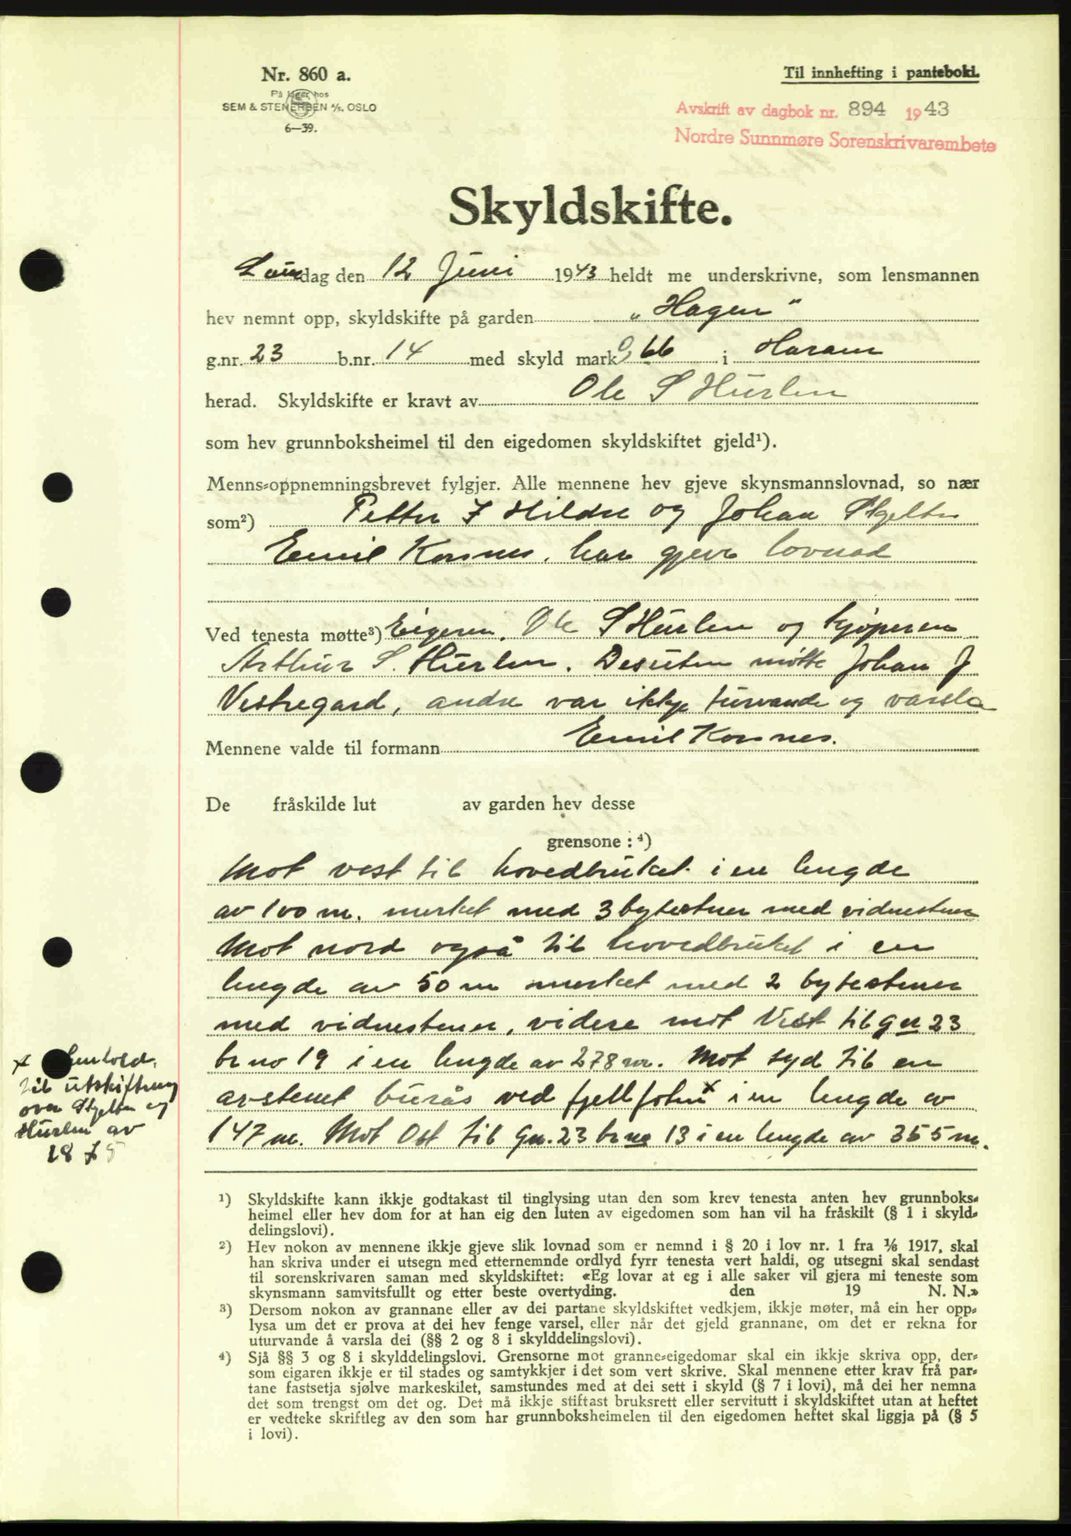 Nr. 860 a.
På lager hos
SEM & STENERSEN A/S, OSLO
6—39.
Til innhefting i pantebok.
Avskrift av dagbok nr. 894 1943
Nordre Sunnmøre Sorenskrivarembete
Skyldskifte.
Laurdag den 12 Juni 1943 heldt me underskrivne, som lensmannen
hev nemnt opp, skyldskifte på garden „Hagen"
g.nr. 23 b.nr. 14 med skyld mark 0,66 i Haram
herad. Skyldskifte er kravt av Ole S Hurlen
som hev grunnboksheimel til den eigedomen skyldskiftet gjeld¹).
Menns-oppnemningsbrevet fylgjer. Alle mennene hev gjeve skynsmannslovnad, so nær
som²) Petter I Hildre og Johan Skjelten
Emil Korsnes, har gjeve lovnad
Ved tenesta møtte³) Eigeren, Ole S Hurlen og kjøperen
Arthur S. Hurlen. Desuten møtte Johan J
Vestregard, andre var ikkje turvande og varsla
Mennene valde til formann Emil Korsnes.
De fråskilde lut av garden hev desse
grensone : ⁴)
Mot vest til hovedbruket i en lengde
av 100 m. merket med 3 bytestener med vidnestener
Mot nord også til hovedbruket i en
lengde av 50 m merket med 2 bytestener
med vidnestener, videre mot Vest til gnr 23
br no 19 i en lengde av 278 m. Mot syd til en
avstenet burås ved fjellfoten x i en lengde av
147 m. Mot Ost til Gn. 23 br no 13 i en lengde av 355 m.
x henhold
til utskiftning
over Skjelten og
Hurlen av
1875
¹) Skyldskifte kann ikkje godtakast til tinglysing utan den som krev tenesta anten hev grunnboks-
heimel eller hev dom for at han eig den luten av eigedomen som han vil ha fråskilt (§ 1 i skyld-
delingslovi).
²) Hev nokon av mennene ikkje gjeve slik lovnad som er nemnd i § 20 i lov nr. 1 fra ¹⁄₆ 1917, skal
han skriva under ei utsegn med etternemnde ordlyd fyrr tenesta vert haldi, og utsegni skal sendast
til sorenskrivaren saman med skyldskiftet: «Eg lovar at eg i alle saker vil gjera mi teneste som
skynsmann samvitsfullt og etter beste overtyding. den 19 N. N.»
³) Dersom nokon av grannane eller av dei partane skyldskiftet vedkjem, ikkje møter, må ein her opp-
lysa um det er prova at dei hev fenge varsel, eller når det gjeld grannane, om det er rekna for
uturvande å varsla dei (§§ 2 og 8 i skylddelingslovi).
⁴) Sjå §§ 3 og 8 i skylddelingslovi. Grensorne mot granne-eigedomar skal ein ikkje skriva opp, der-
som eigaren ikkje er til stades og samtykkjer i det som vert skrive. Skal mennene etter krav frå par-
tane fastsetja sjølve markeskilet, samstundes med at dei sett i skyld (§ 7 i lovi), må dei her nemna
det som trengst om det og. Det må ikkje stiftast bruksrett eller servitutt i skyldskiftet utan at heftet
er vedteke skriftleg av den som har grunnboksheimelen til den eigedomen heftet skal liggja på (§ 5
i lovi).